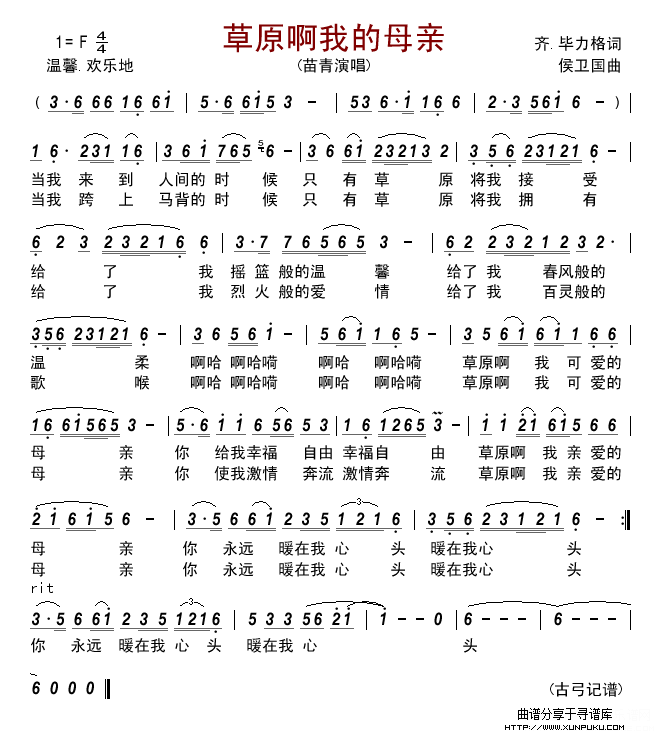 草原啊我的母亲
1= F 4/4
齐.毕力格词
温馨.欢乐地
(苗青演唱)
侯卫国曲
( 3·6 66 16 61 | 5·6 6615 3 - | 53 6·1 16 6 | 2·3 5616 - )
1 6· 2311 16 | 361 765 5 6 - | 3 661 23213 2 | 356 23121 6 - |
当我 来 到 人间的 时 候 只 有 草 原 将我 接 受
当我 跨 上 马背的 时 候 只 有 草 原 将我 拥 有
6 2 3 23216 | 3·7 76565 3 - | 62 2321 23 2· |
给 了 我 摇 篮 般的温 馨 给了 我 春风般的
给 了 我 烈 火 般的爱 情 给了 我 百灵般的
356 23121 6 - | 36 5651 6 - | 5651 165 - | 3561 61 1 65 |
温 柔 啊哈 啊哈嗬 啊哈 啊哈嗬 草原啊 我 可 爱的
歌 喉 啊哈 啊哈嗬 啊哈 啊哈嗬 草原啊 我 可 爱的
16 61565 3 - | 5·6 11 656 53 | 16 1265 3 - | 11 21615 66 |
母 亲 你 给我幸福 自由 幸福自 由 草原啊 我 亲 爱的
母 亲 你 使我激情 奔流 激情奔 流 草原啊 我 亲 爱的
21 615 6 - | 3·5 661 235 121 6 | 356 23121 6 - :||
母 亲 你 永远 暖在我 心 头 暖在我心 头
母 亲 你 永远 暖在我 心 头 暖在我心 头
rit
3·5 661 235 1216 | 533 56 21 1 - | 1 - - 0 | 6 - - - | 6 - - - |
你 永远 暖在我 心 头 暖在我 心 头
6 0 0 0 ||
(古弓记谱)
曲谱分享于寻谱库
HTTP://WWW.XUNPUKU.COM